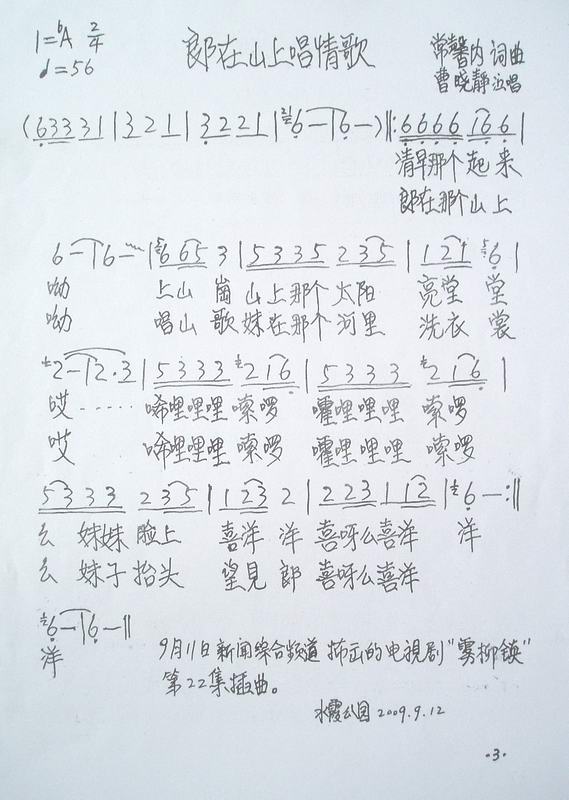 1=ᵇA 2/4
♩=56
郎在山上唱情歌
常馨内 词曲
曹晓静 演唱
(6333 31 | 3 2 1 | 3 2 2 1 | 6 — | 6 — ) ‖: 6666 166 |
清早那个起来
郎在那个山上
6 — | 6 — | 6 65 3 | 5335 235 | 1 21 6 |
呦 上山 崗 山上那个 太阳 亮堂 堂
呦 唱山 歌 妹在那个 河里 洗衣 裳
2 — | 2·3 | 5333 216 | 5333 216 |
哎 ····· 唏哩哩哩 嗦啰 嚯哩哩哩 嗦啰
哎 唏哩哩哩 嗦啰 嚯哩哩哩 嗦啰
5333 235 | 1 23 2 | 2231 12 | 6 — :‖
么 妹妹 脸上 喜洋 洋 喜呀么喜洋 洋
么 妹子 抬头 望見 郎 喜呀么喜洋
6 — | 6 — ‖
洋
9月11日新闻综合频道 播出的电視剧"雾柳镇"
第22集插曲。
水霞公园 2009.9.12
·3·